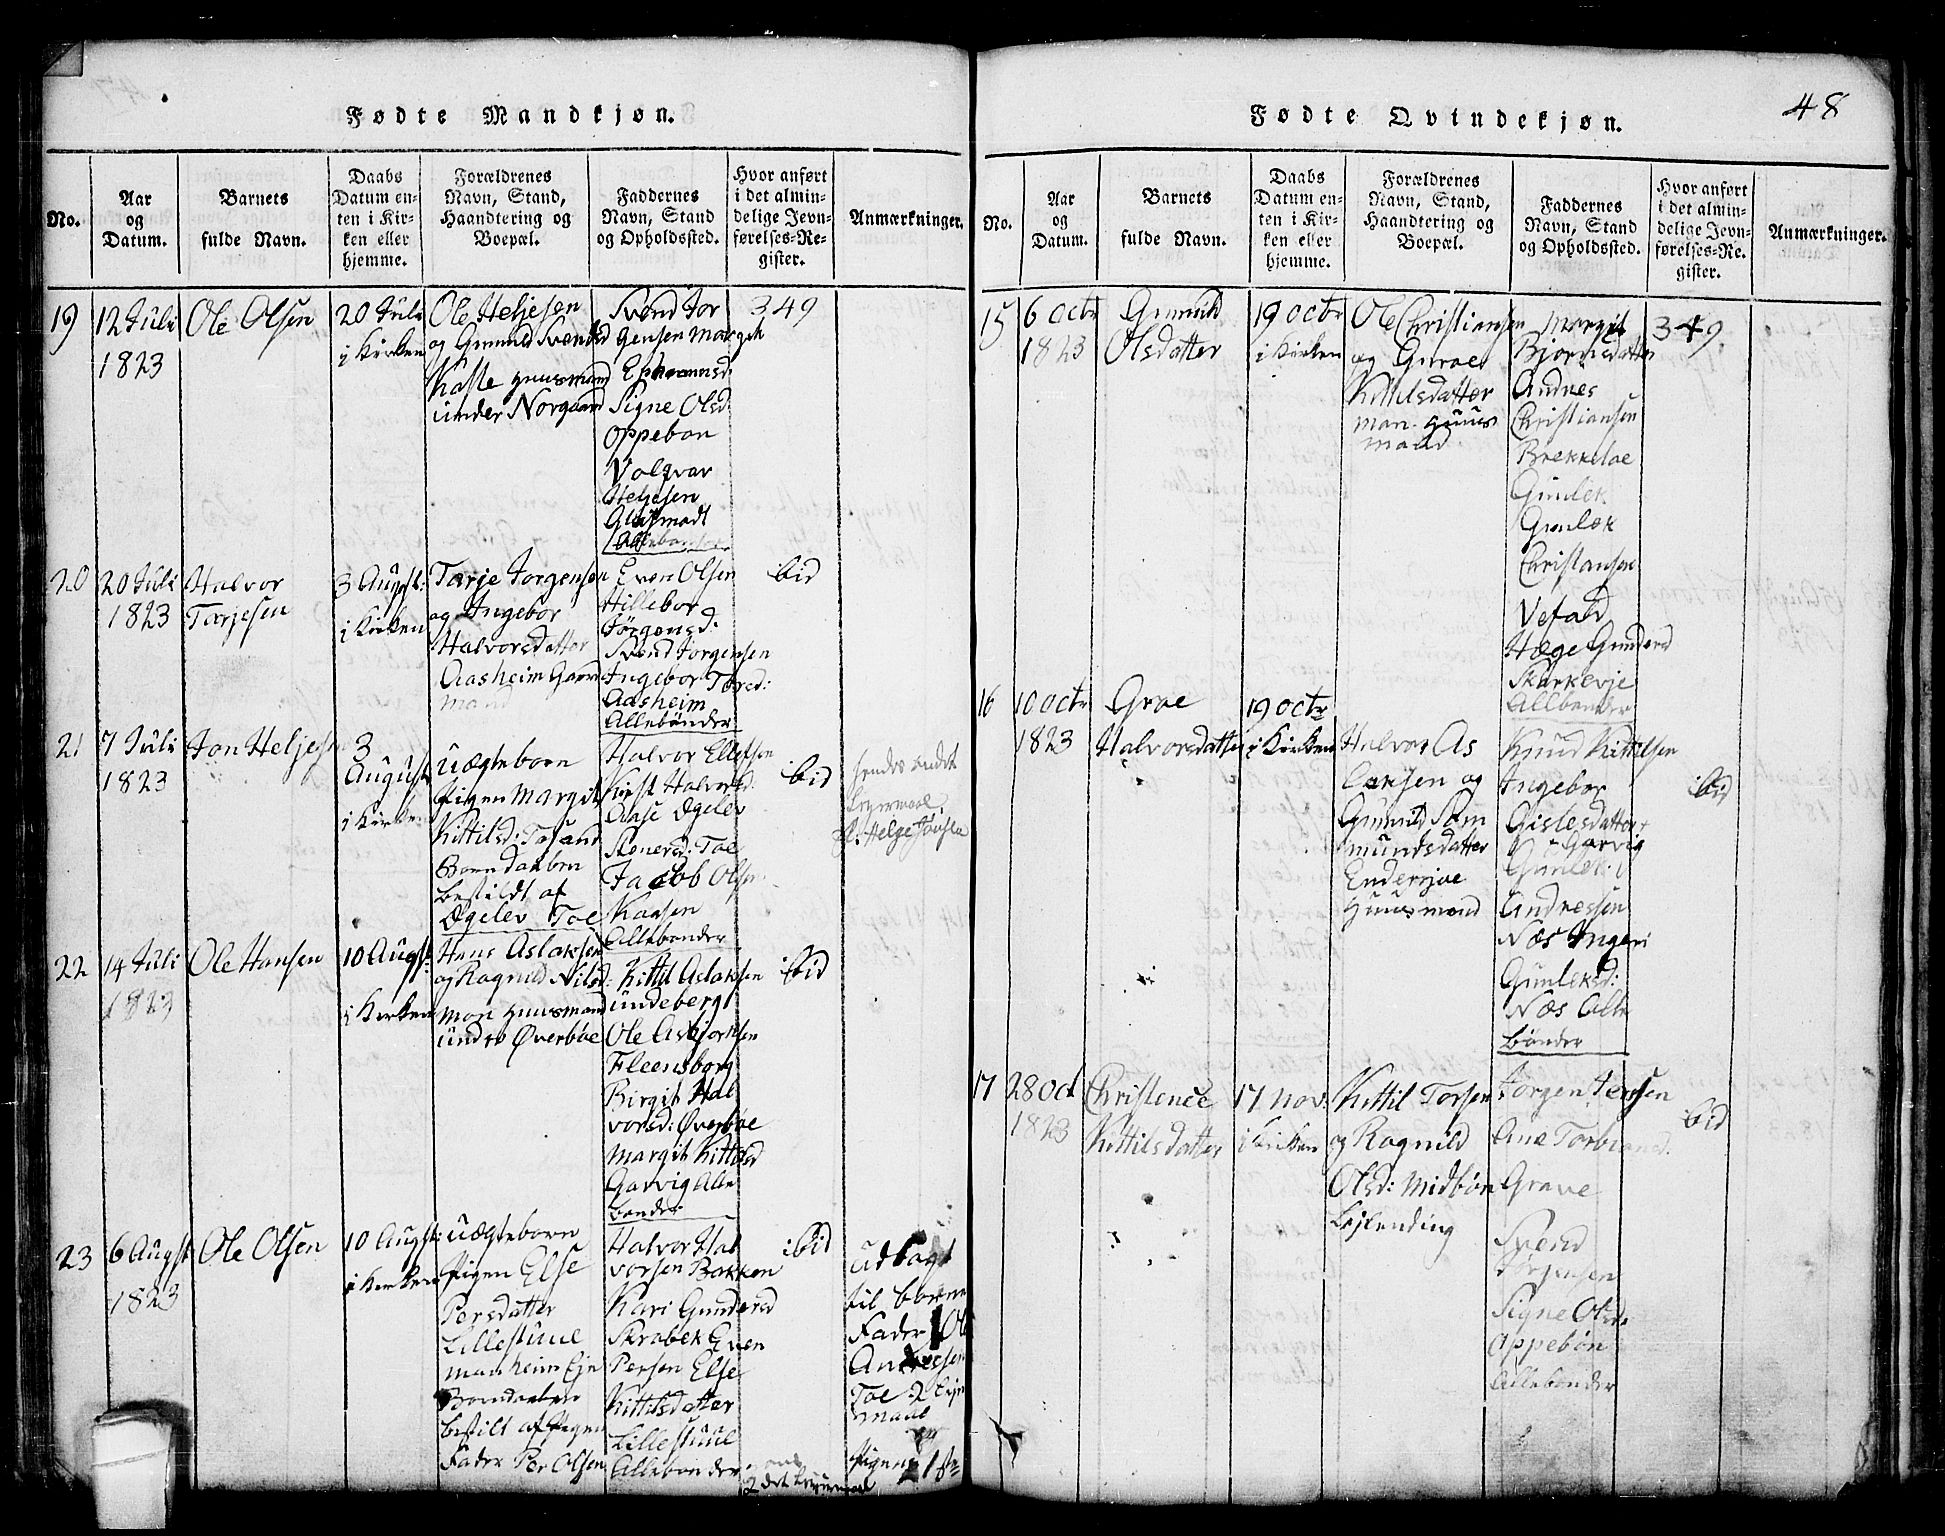 48
Fødte Mandkjøn.
No.
Aar
og
Datum.
Barnets
fulde Navn.
Daabs
Datum en-
ten i Kir-
ken eller
hjemme.
Forældrenes
Navn, Stand,
Haandtering og
Boepæl.
Faddernes
Navn, Stand
og Opholdssted.
Hvor anført
i det almin-
delige Jevn-
førelses-Re-
gister.
Anmærkninger.
19
12 Juli
1823
Ole Olsen
20 Juli
i Kirken
Ole Heljesen
og Gunuld Svendsd
Kaste Huusmand
under Norgaard
Svend Jor
gensen Margit
Signe Olsd:
Oppebøn
Volqvar
Heljesen
Allebønder
349
20
20 Juli
1823
Halvor
Tarjesen
3 Augst:
i Kirken
Tarje Jorgensen
og Ingebor
Halvorsdatter
Aasheim Gaard
mand
Even Olsen
Hillebor
Jørgensd:
Svend Jorgensen
Ingebor Tored:
Aasheim
Allebønder
ibid
21
7 Juli
1823
Jon Heljesen
3
August
i Kirken
uægteborn
Pigen Margit
Kittilsd:
Borndaaben
bestildt af
Øgelev Toe
Halvor Ellefsen
Halvorsd:
Aase Øgelev
Toe
Jacob Olsen
Kaasen
Allebønder
ibid
hendes andet
Leyermaal
Helge Jonsen
22
14 Juli
1823
Ole Hansen
10 Augst
i Kirken
Hans Aslaksen
og Ragnild Nilsd:
Mon Huusmand
under Øverbøe
Kittil Aslaksen
Lundeberg
Ole
Fleensborg
Birgit Hal
vorsd: Øverbøe
Margit Kittilsd
Garvig Alle
bønder
ibid
23
6 Augst
1823
Ole Olsen
10 Augst:
i Kirken
uægteborn
Pigen Else
Persdatter
Lillestuul
Manheim Eje
Borndaaben
bestilt af Pigens
Fader Per Olsen
Halvor Hal
vorsen Bakken
Kari Gundersd
Skrobek Even
Persen Else
Kittilsdatter
Lillestuul
Allebønder
ibid
udlagt
til barne
Fader Ole
Andresen
Toe 2
maal
Pigens 1ste
2det Leyermaal
Fødte Qvindekjøn.
No.
Aar
og
Datum.
Barnets
fulde Navn.
Daabs
Datum en-
ten i Kir-
ken eller
hjemme.
Forældrenes
Navn, Stand,
Haandtering og
Boepæl.
Faddernes
Navn, Stand
og Opholdssted.
Hvor anført
i det almin-
delige Jevn-
førelses-Re-
gister.
Anmærkninger.
15
6 octr
1823
Gunuld
Olsdatter
19 octr
i Kirken
Ole Christiansen
og Guroe
Kittilsdatter
Mon. Huus
mand
Margit
Bjørnsdatter
Andres
Christiansen
Brekkeloe
Gunlek
Gunlek
Christansen
Vefald
Hæge Gundersd
Skarkevje
Allbønder
349
16
10 octr
1823
Groe
Halvorsdatter
19 octr
i Kirken
Halvor As
laksen og
Gunuld Sam
mundsdatter
Enderjoe
Huusmand
Knud Kittilsen
Ingebor
Gislesdatter
Garvig
Gunlek
Andressen
Næs Ingeri
Gunleksd:
Næs Alle
bønder
ibid
17
28 Oct
1823
Christence
Kittilsdatter
17 nov.
i Kirken
Kittil Torsen
og Ragnild
Olsd: Midbøn
Lejlending
Jorgen Jensen
Ane Torbiønsd.
Grave
Svend
Jørgensen
Signe Olsd.
Oppebøn
Allebønder
ibid